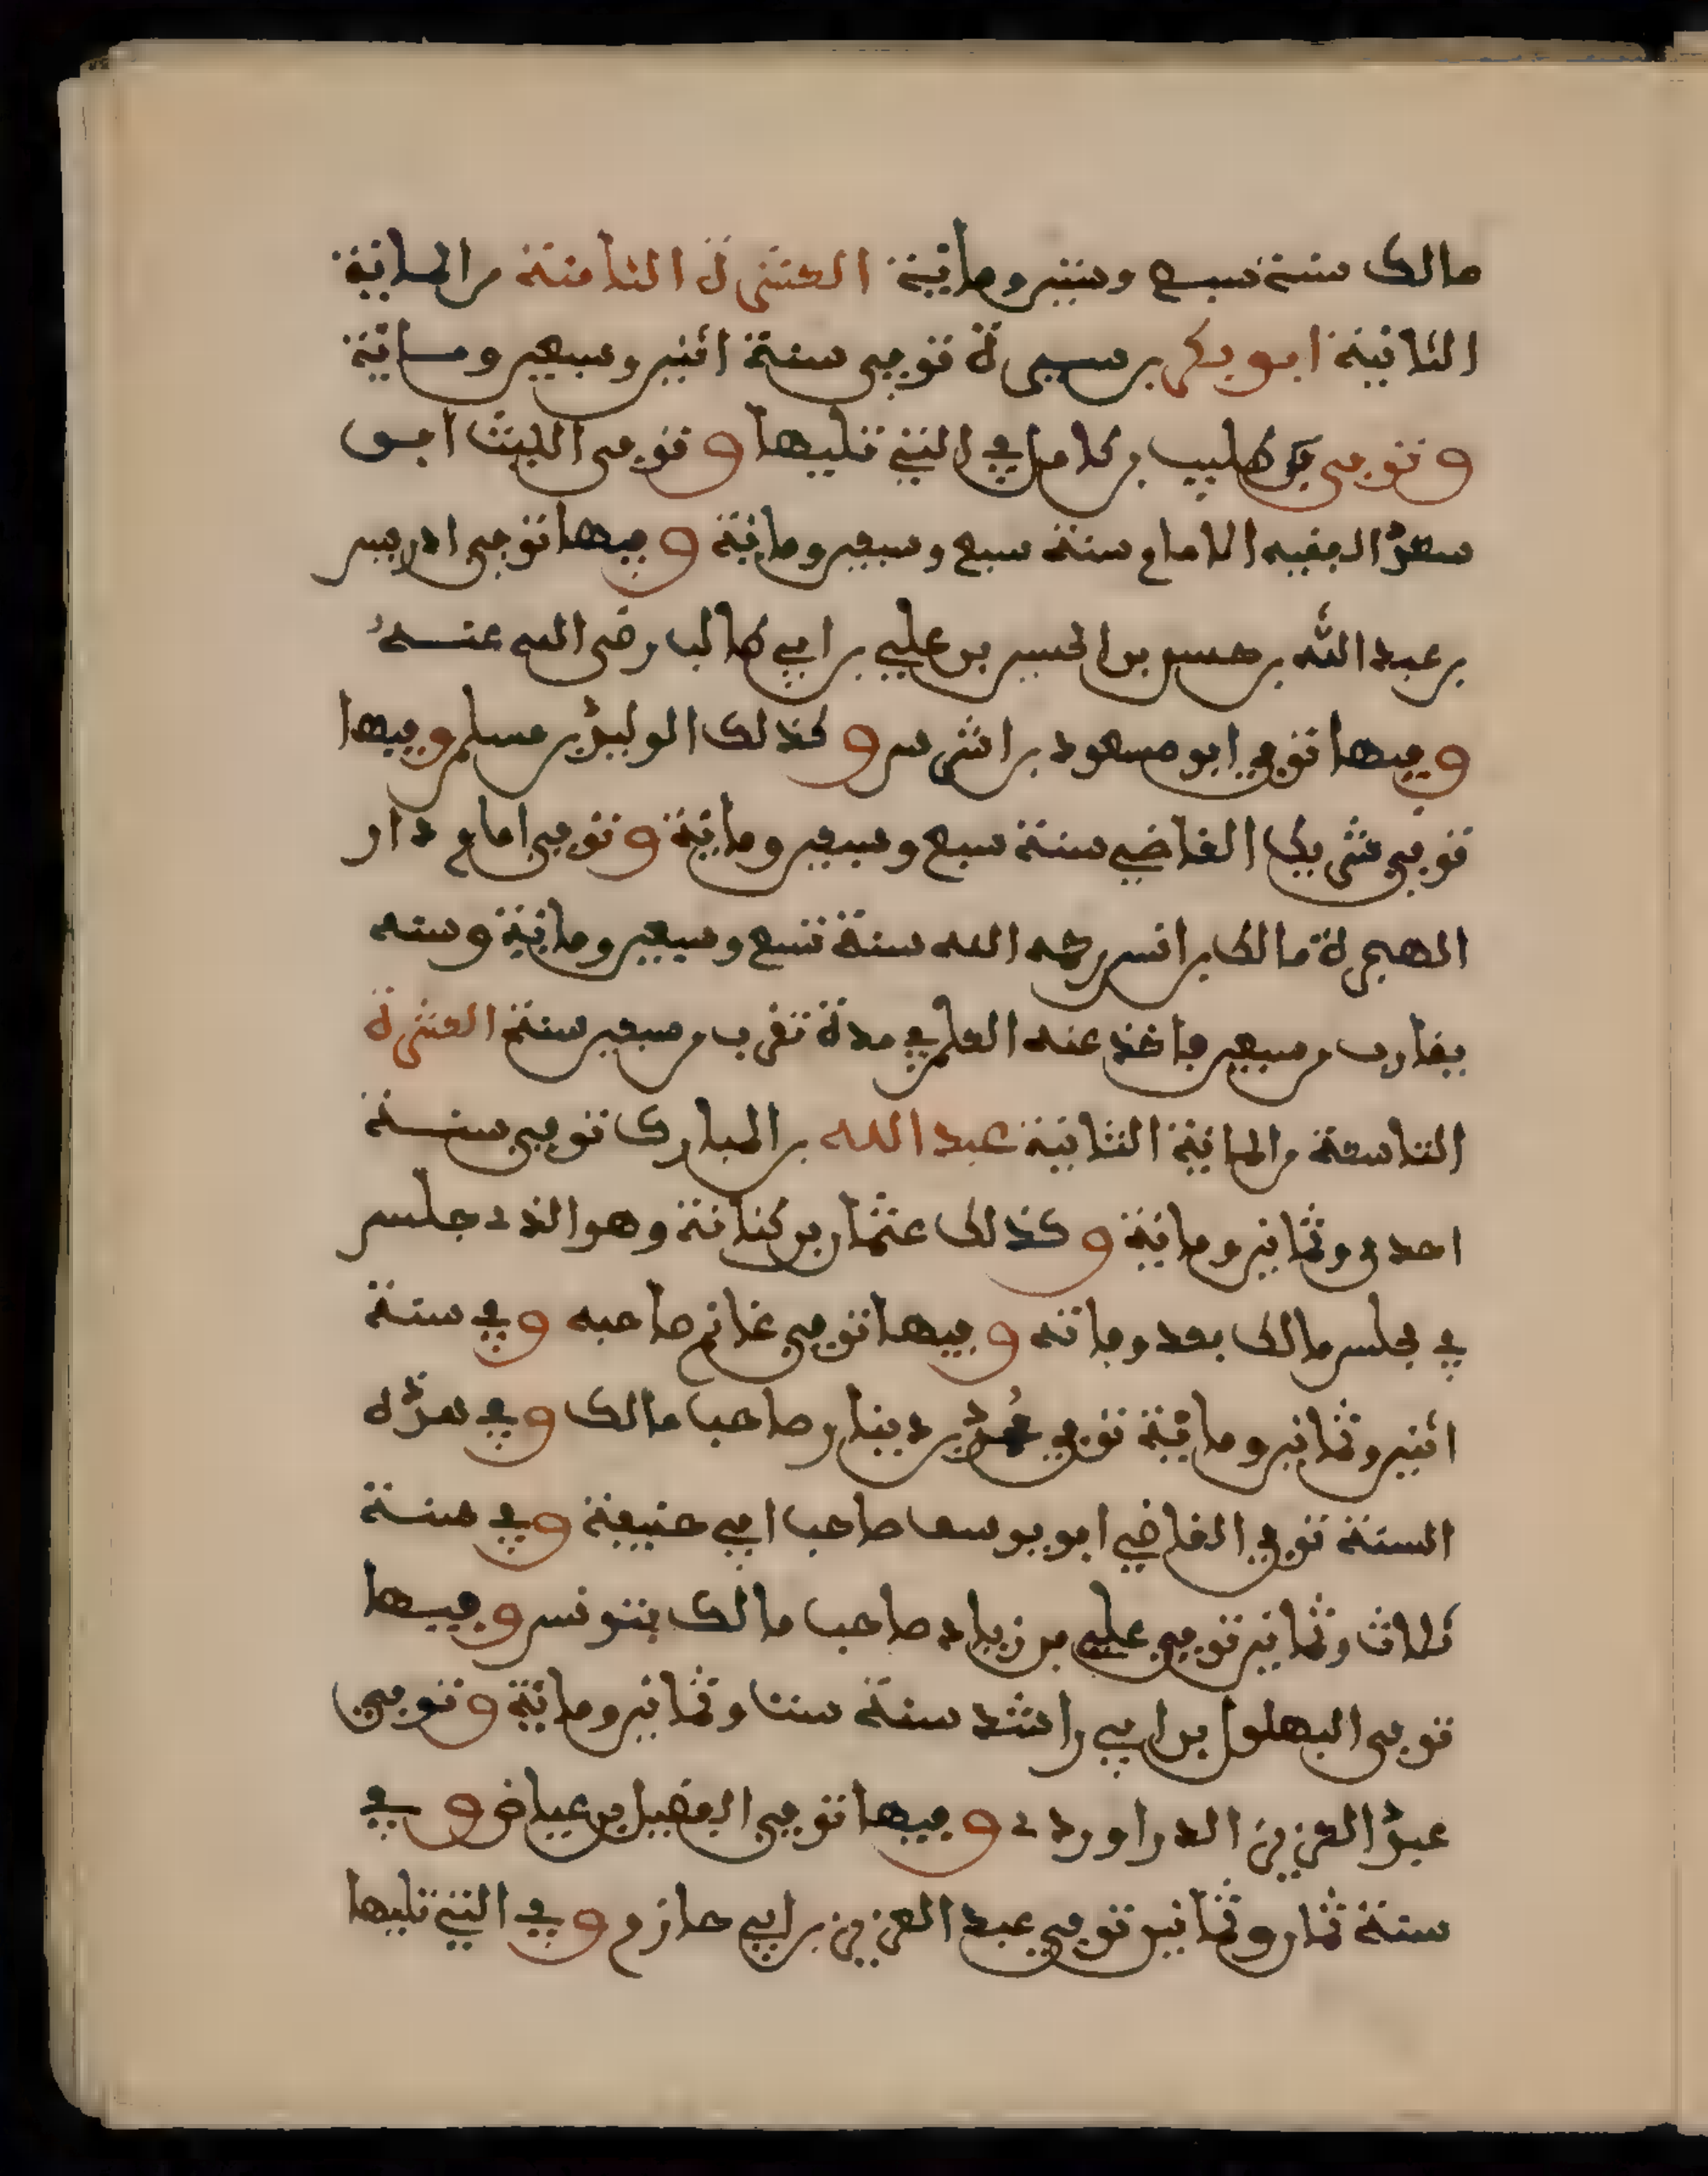 مالك سنة سبع وستين ومائية العشرة الثامنة من المائية
الثانية ابو بكر بن سبرة توفي سنة اثنين وسبعين ومائية
وتوفي كليب بن كامل في التي تليها وتوفي الليث ابو
سعد الفقيه الامام سنة سبع وسبعين ومائية وفيها توفي ادريس
بن عبد الله بن حسن بن الحسين بن علي بن ابي طالب رضى الله عنه
وفيها توفي ابو مسعود بن اشرس وكذلك الوليد بن مسلم وفيها
توفي شريك القاضي سنة سبع وسبعين ومائية وتوفي امام دار
الهجرة مالك بن انس رحمه الله سنة تسع وسبعين ومائية وسنه
يقارب من سبعين فاخذ عنه العلم في مدة تقرب من سبعين سنة العشرة
التاسعة من المائية الثانية عبد الله بن المبارك توفي سنة
احدى وثمانين ومائية وكذلك عثمان بن كنانة وهو الذي جلس
في مجلس مالك بعد وفاته وفيها توفي غانم صاحبه وفي سنة
اثنين وثمانين ومائية توفي محمد بن دينار صاحب مالك وفي هذه
السنة توفي القاضي ابو يوسف صاحب ابي حنيفة وفي سنة
ثلاث وثمانين توفي علي بن زياد صاحب مالك بتونس وفيها
توفي البهلول بن ابي راشد سنة ست وثمانين ومائية وتوفي
عبد العزيز الدراوردي وفيها توفي الفضيل بن عياض وفي
سنة ثمان وثمانين توفي عبد العزيز بن ابي حازم وفي التي تليها